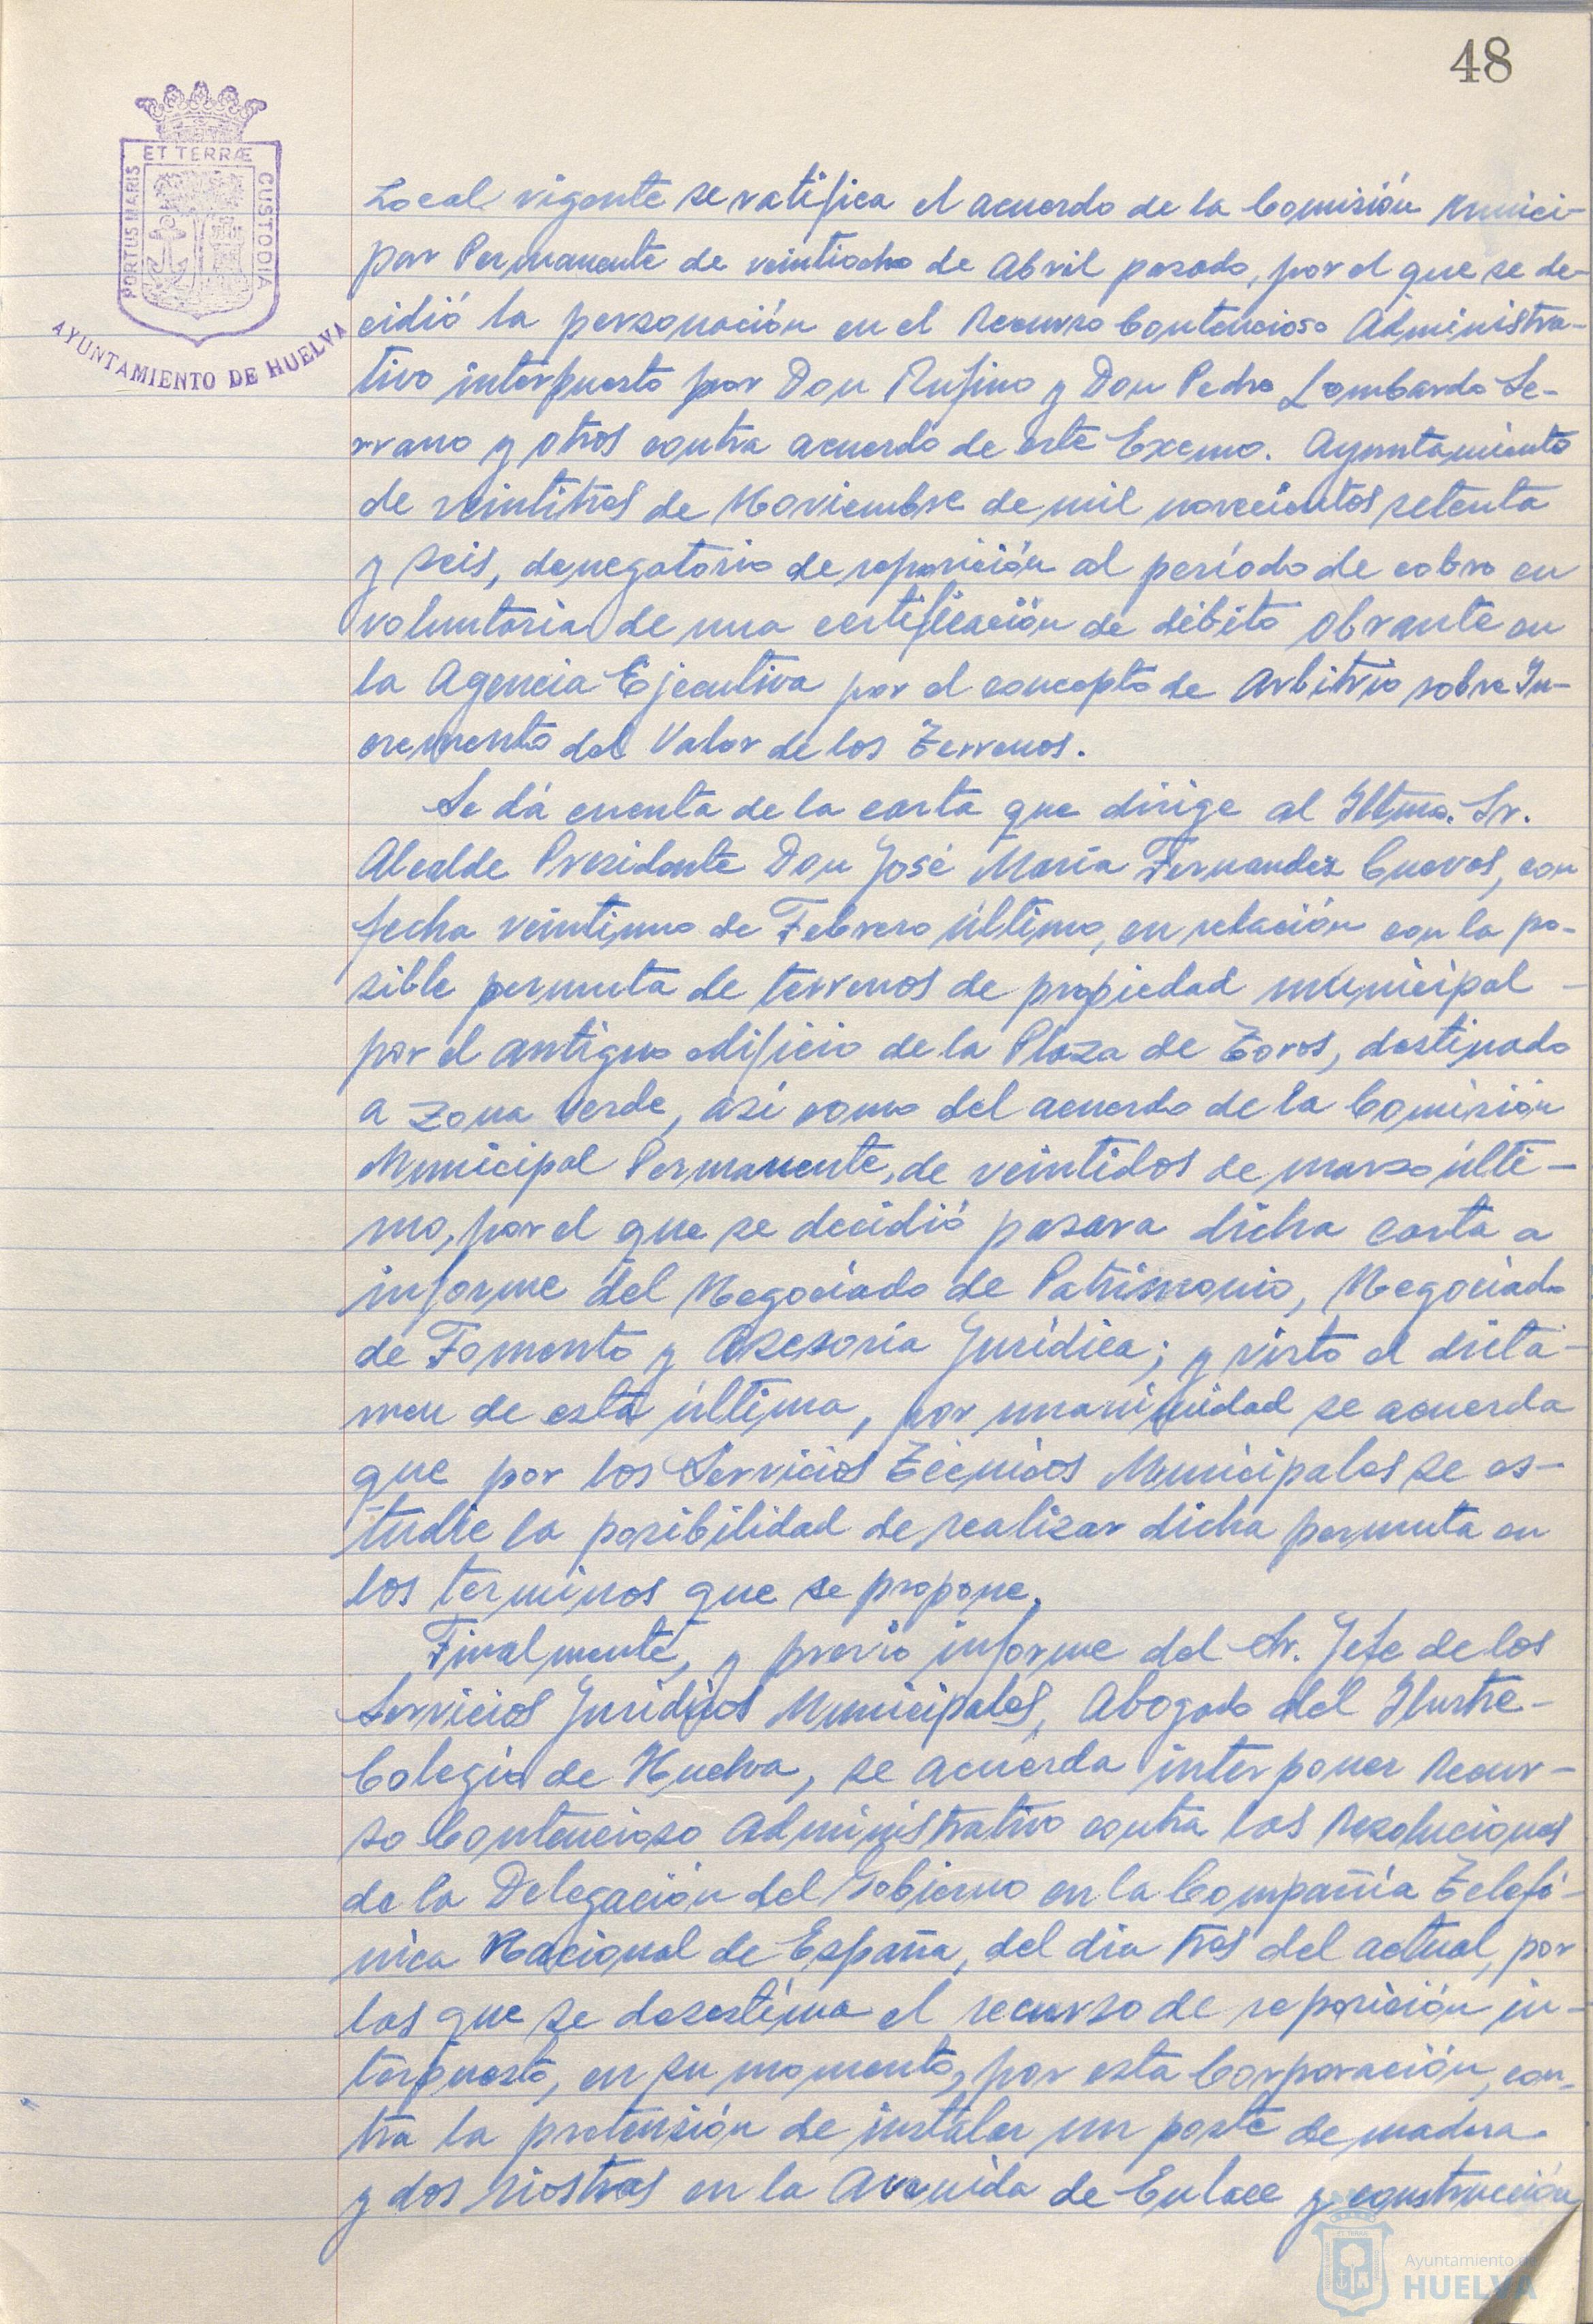 48
ET TERRÆ
PORTUS MARIS
CUSTODIA
AYUNTAMIENTO DE HUELVA
Local vigente se ratifica el acuerdo de la Comisión Munici-
par Permanente de veintiocho de Abril pasado, por el que se de-
cidió la personación en el Recurso Contencioso Administra-
tivo interpuesto por Don Rufino y Don Pedro Lombardo Se-
rrano y otros contra acuerdo de este Excmo. Ayuntamiento
de veintitres de Noviembre de mil novecientos setenta
y seis, denegatorio de reposición al período de cobro en
voluntaria de una certificación de débito obrante en
la Agencia Ejecutiva por el concepto de Arbitrio sobre In-
cremento del Valor de los Terrenos.
Se dá cuenta de la carta que dirige al Iltmo. Sr.
Alcalde Presidente Don José María Fernandez Cuevas, con
fecha veintiuno de Febrero último, en relación con la po-
sible permuta de terrenos de propiedad municipal -
por el antiguo edificio de la Plaza de Toros, destinado
a Zona Verde, así como del acuerdo de la Comisión
Municipal Permanente, de veintidos de marzo últi-
mo, por el que se decidió pasara dicha carta a
informe del Negociado de Patrimonio, Negociado
de Fomento y Asesoría Jurídica; y visto el dicta-
men de esta última, por unanimidad se acuerda
que por los Servicios Técnicos Municipales se es-
tudie la posibilidad de realizar dicha permuta en
los terminos que se propone.
Finalmente, y previo informe del Sr. Jefe de los
Servicios Jurídicos Municipales, Abogado del Ilustre-
Colegio de Huelva, se acuerda interponer Recur-
so Contencioso Administrativo contra las Resoluciones
de la Delegación del Gobierno en la Compañía Telefó-
nica Nacional de España, del día tres del actual, por
las que se desestima el recurso de reposición in-
terpuesto, en su momento, por esta Corporación, con-
tra la pretensión de instalar un poste de madera
y dos riostras en la Avenida de Enlace y construcción
Ayuntamiento de
HUELVA